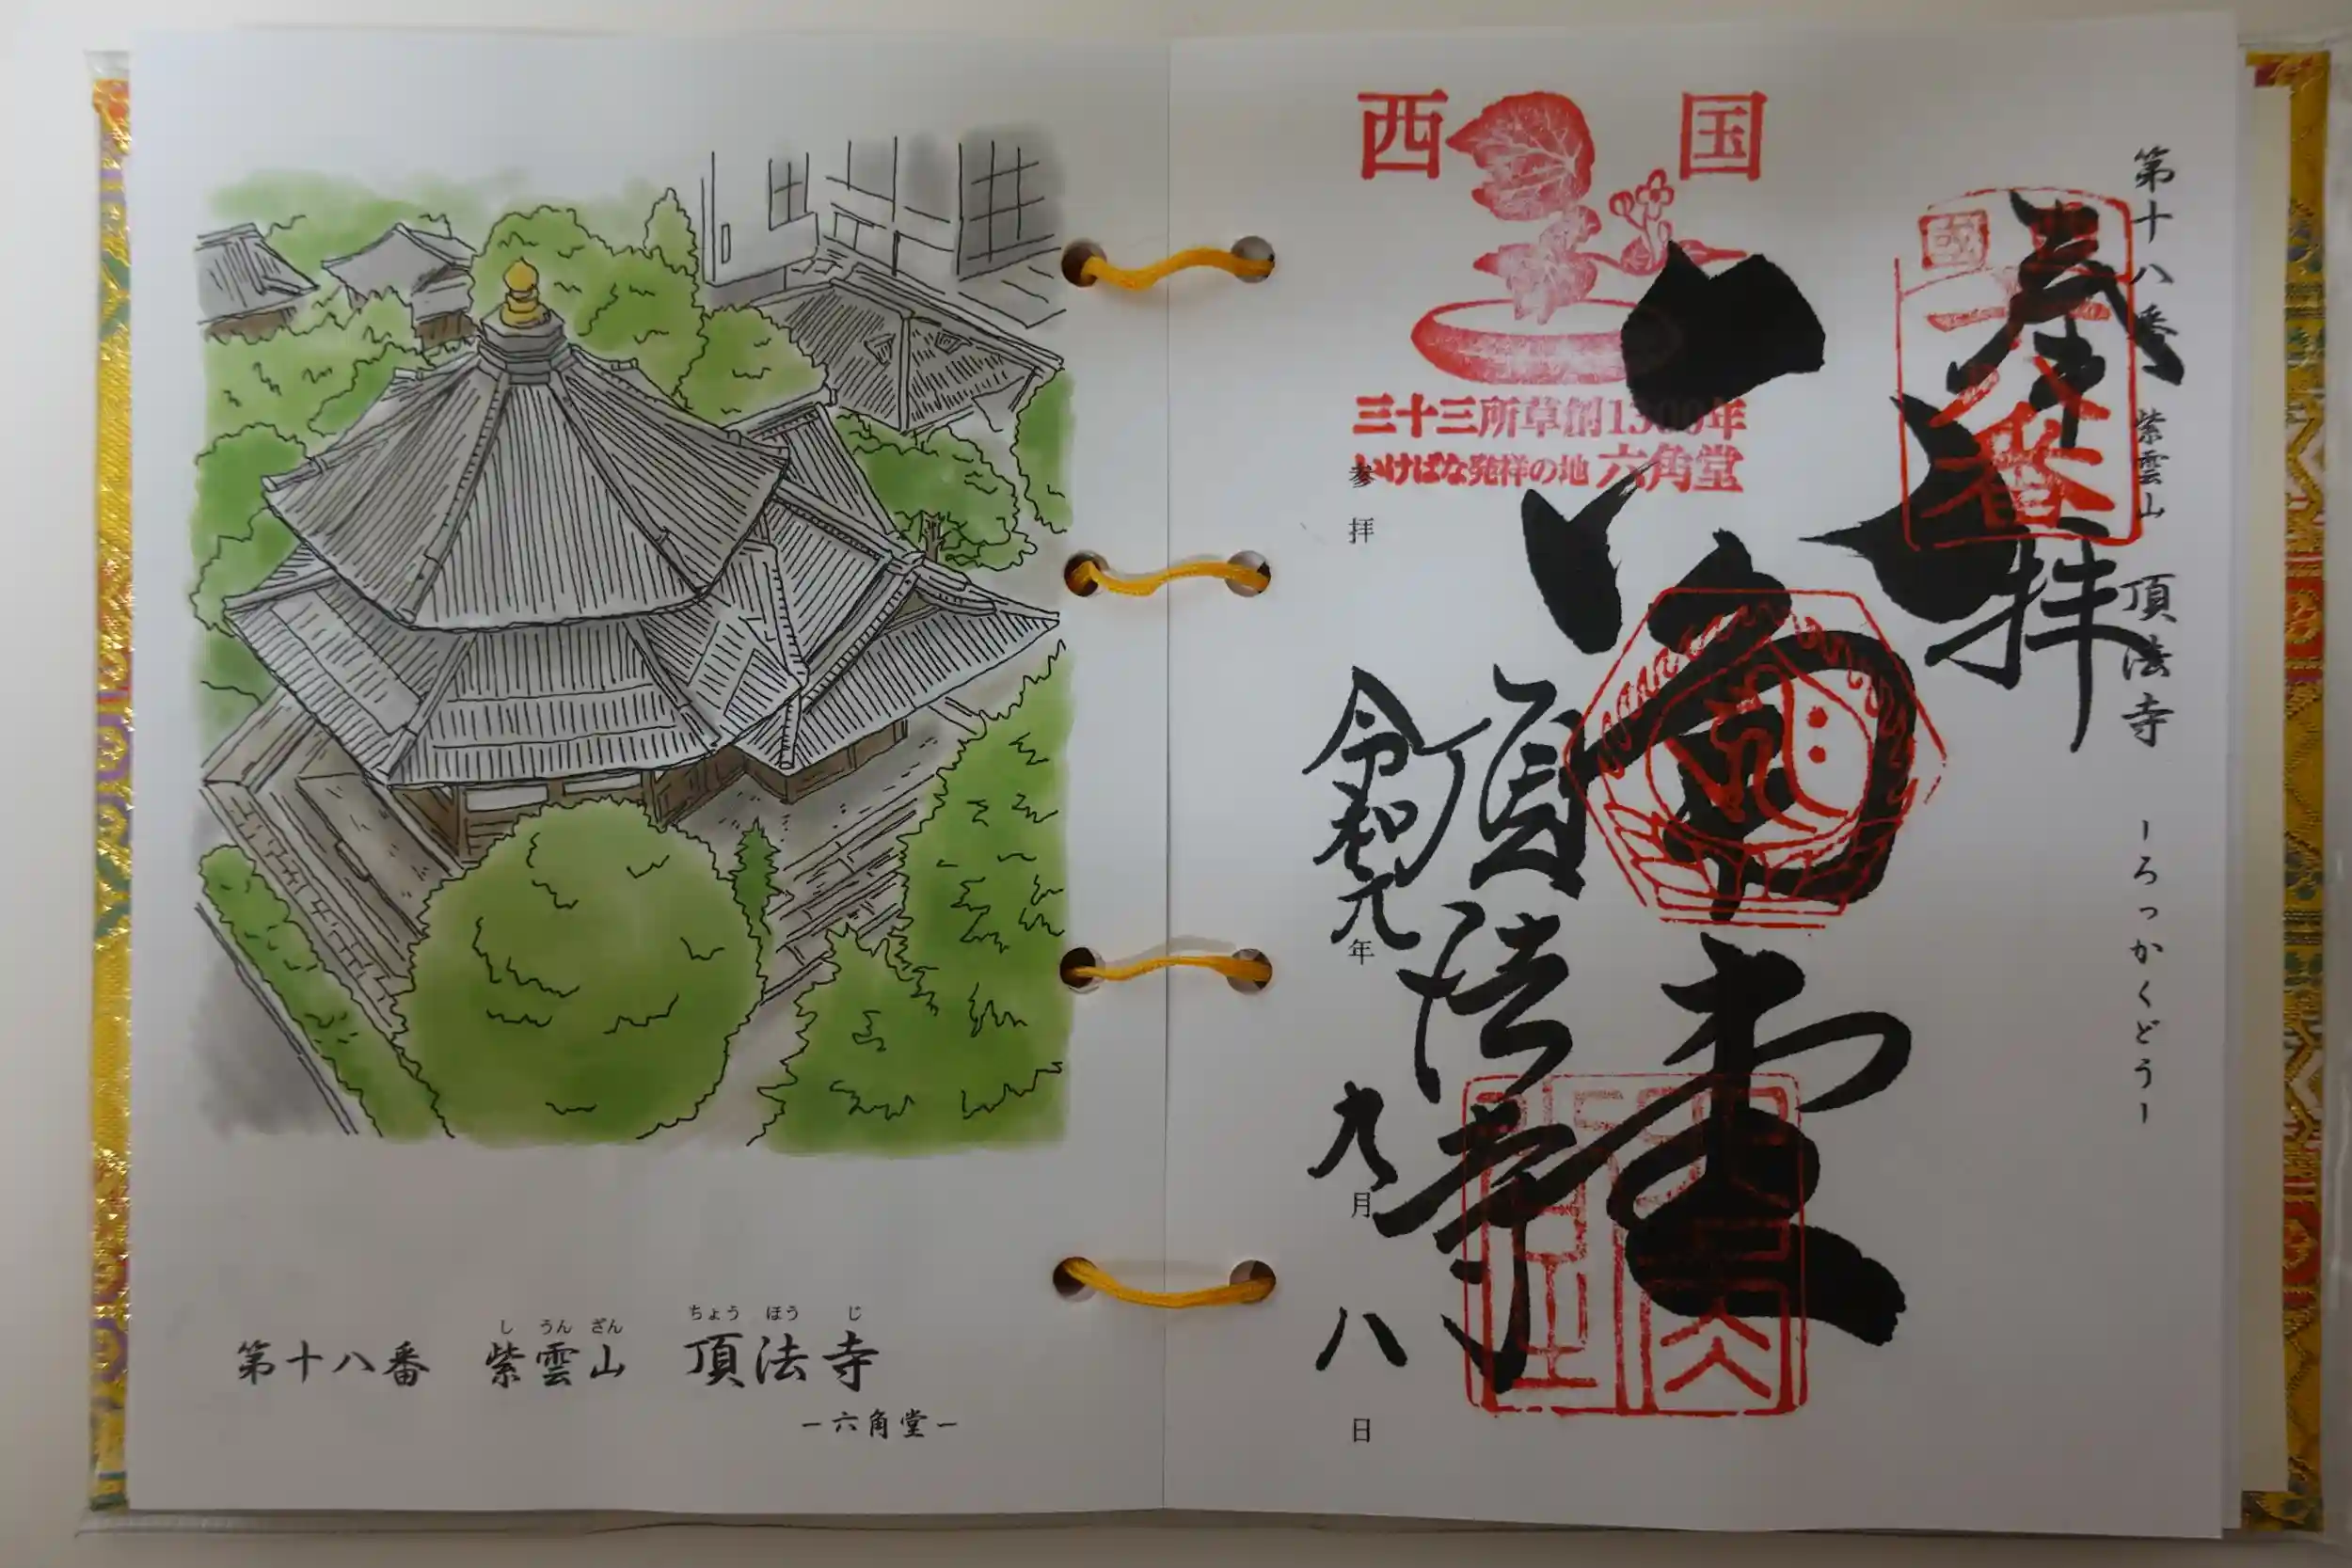 第十八番 紫雲山 頂法寺
し うん ざん ちょう ほう じ
ー六角堂ー
西国
三十三所草創1300年
いけばな発祥の地 六角堂
第十八番 紫雲山 頂法寺 ーろっかくどうー
奉拝
六角堂
頂法寺
参拝 令和元年 九月 八日